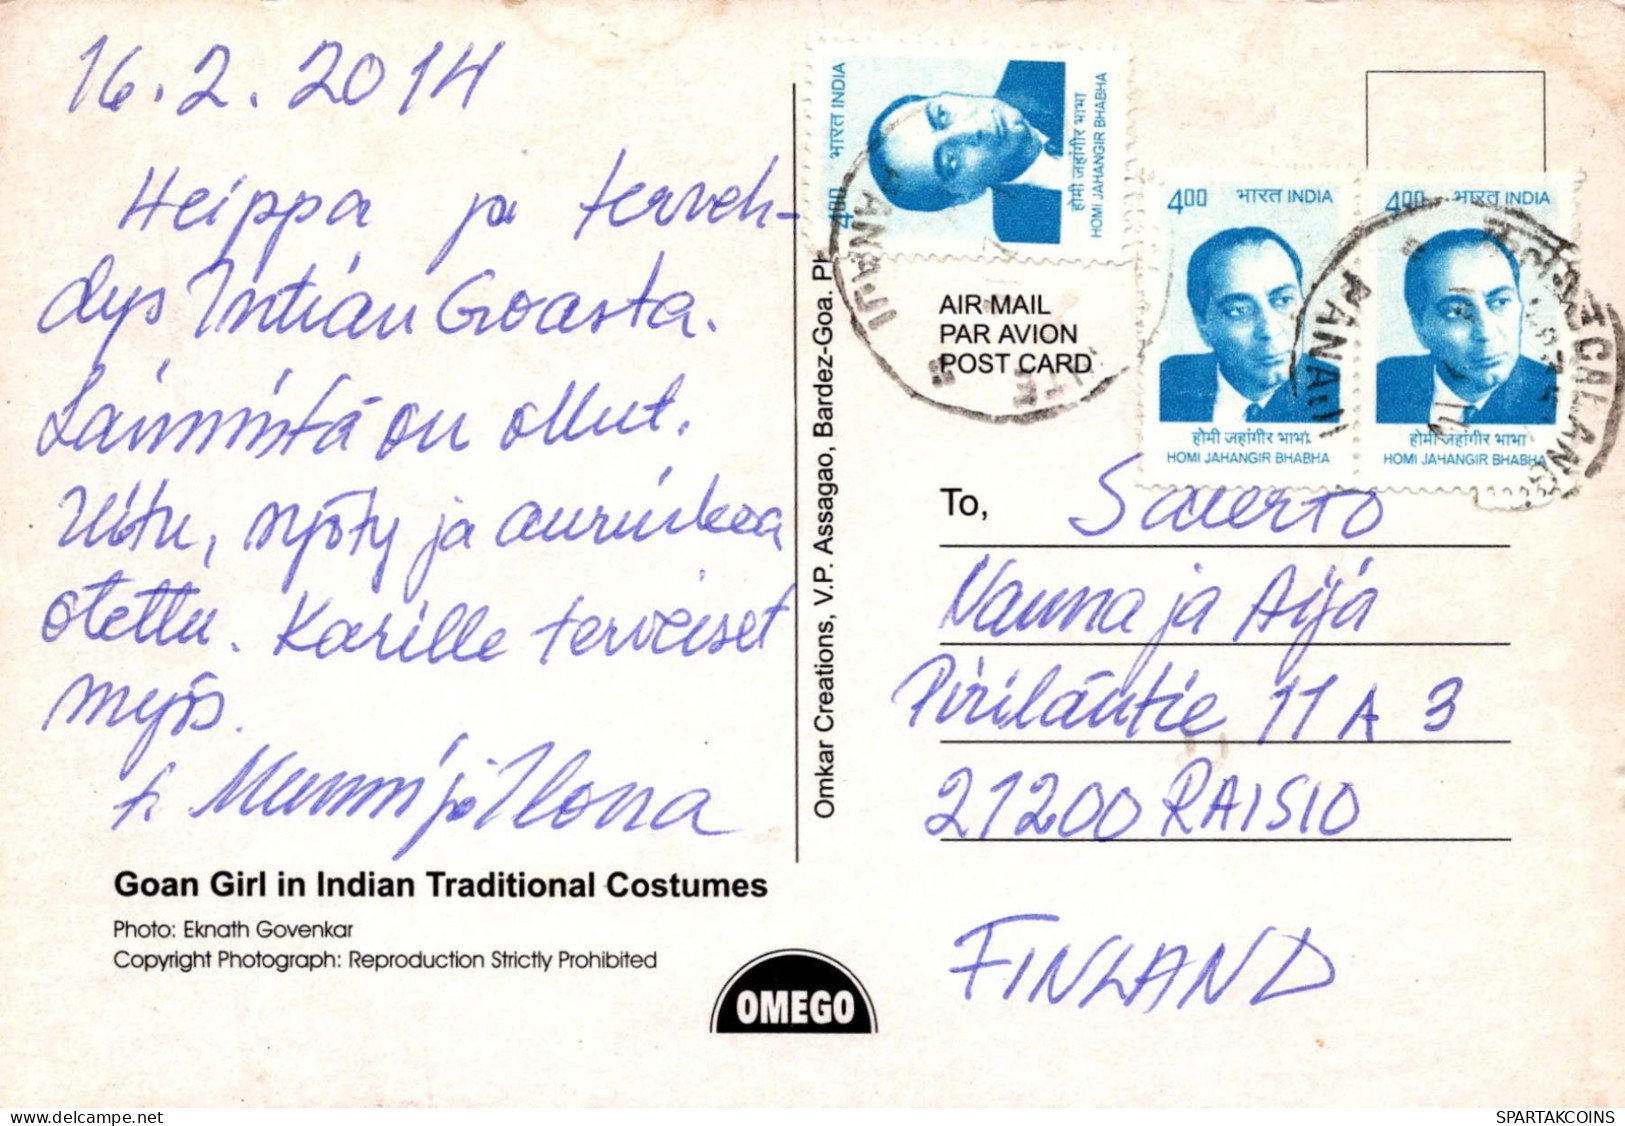 16.2.2014
Heippa ja terveh-
dys Intian Goasta.
Lämmintä on ollut.
Uitu, syöty ja aurinkoa
otettu. Karille terveiset
myös.
t. Mummi ja Ilona
Goan Girl in Indian Traditional Costumes
Photo: Eknath Govenkar
Copyright Photograph: Reproduction Strictly Prohibited
OMEGO
Omkar Creations, V.P. Assagao, Bardez-Goa. Ph
भारत INDIA
4.00
होमी जहांगीर भाभा
HOMI JAHANGIR BHABHA
PANAJI
AIR MAIL
PAR AVION
POST CARD
4.00 भारत INDIA
होमी जहांगीर भाभा
HOMI JAHANGIR BHABHA
4.00 भारत INDIA
होमी जहांगीर भाभा
HOMI JAHANGIR BHABHA
PANAJI
To,
Nauna ja Aija
Piriläntie 11 A 3
21200 RAISIO
FINLAND
delcampe.net
SPARTAKCOINS